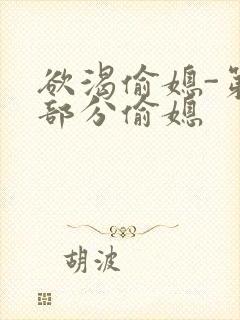 欲渴偷媳-第
部分偷媳
胡波